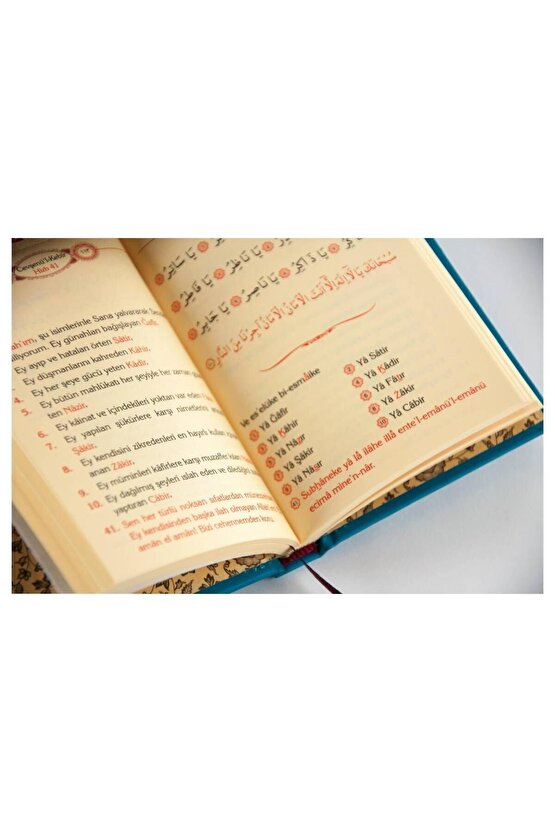 Cevşenü'l-Kebîr
Hizb 41
şu isimlerinle Sana yalvararak
Ey günahları bağışlayan Ğafir,
Ey ayıp ve hataları örten Sâtir,
Ey düşmanlarını kahreden Kâhir,
4. Ey her şeye gücü yeten Kâdir,
5. Ey bütün mahlûkatı her şeyiyle her zaman
ten Nâzir,
6. Ey kâinat ve içindekileri yoktan var eden
7. Ey yapılan şükürlere karşı nimetlerini
Şâkir,
8. Ey kendisini zikredenleri en hayırlı
anan Zâkir,
9. Ey müminleri kâfirlere karşı muzaffer
10. Ey dağılmış şeyleri ıslah eden ve dilediğini
yaptıran Câbir,
41. Sen her türlü noksan sıfatlardan münezzehsin
Ey kendisinden başka ilah olmayan Allah
amân el amân! Bizi cehennemden koru.
يَا قَاطِرُ يَا سَاتِرُ
يَا ذَاكِرُ يَا نَاصِرُ يَا جَابِرُ
سُبْحَانَكَ يَا لَا إِلٰهَ إِلَّا أَنْتَ الْأَمَانُ الْأَمَانُ أَجِرْنَا مِنَ النَّارِ
Ve es'elüke bi-esmâike
1 Yâ Ğâfir
2 Yâ Sâtir
3 Yâ Kâhir
4 Yâ Kâdir
5 Yâ Nâzır
6 Yâ Fâtır
7 Yâ Şâkir
8 Yâ Zâkir
9 Yâ Nâsır
10 Yâ Câbir
41 Subhâneke yâ lâ ilâhe illâ ente'l-emânü'l-emânü
ecirnâ mine'n-nâr.